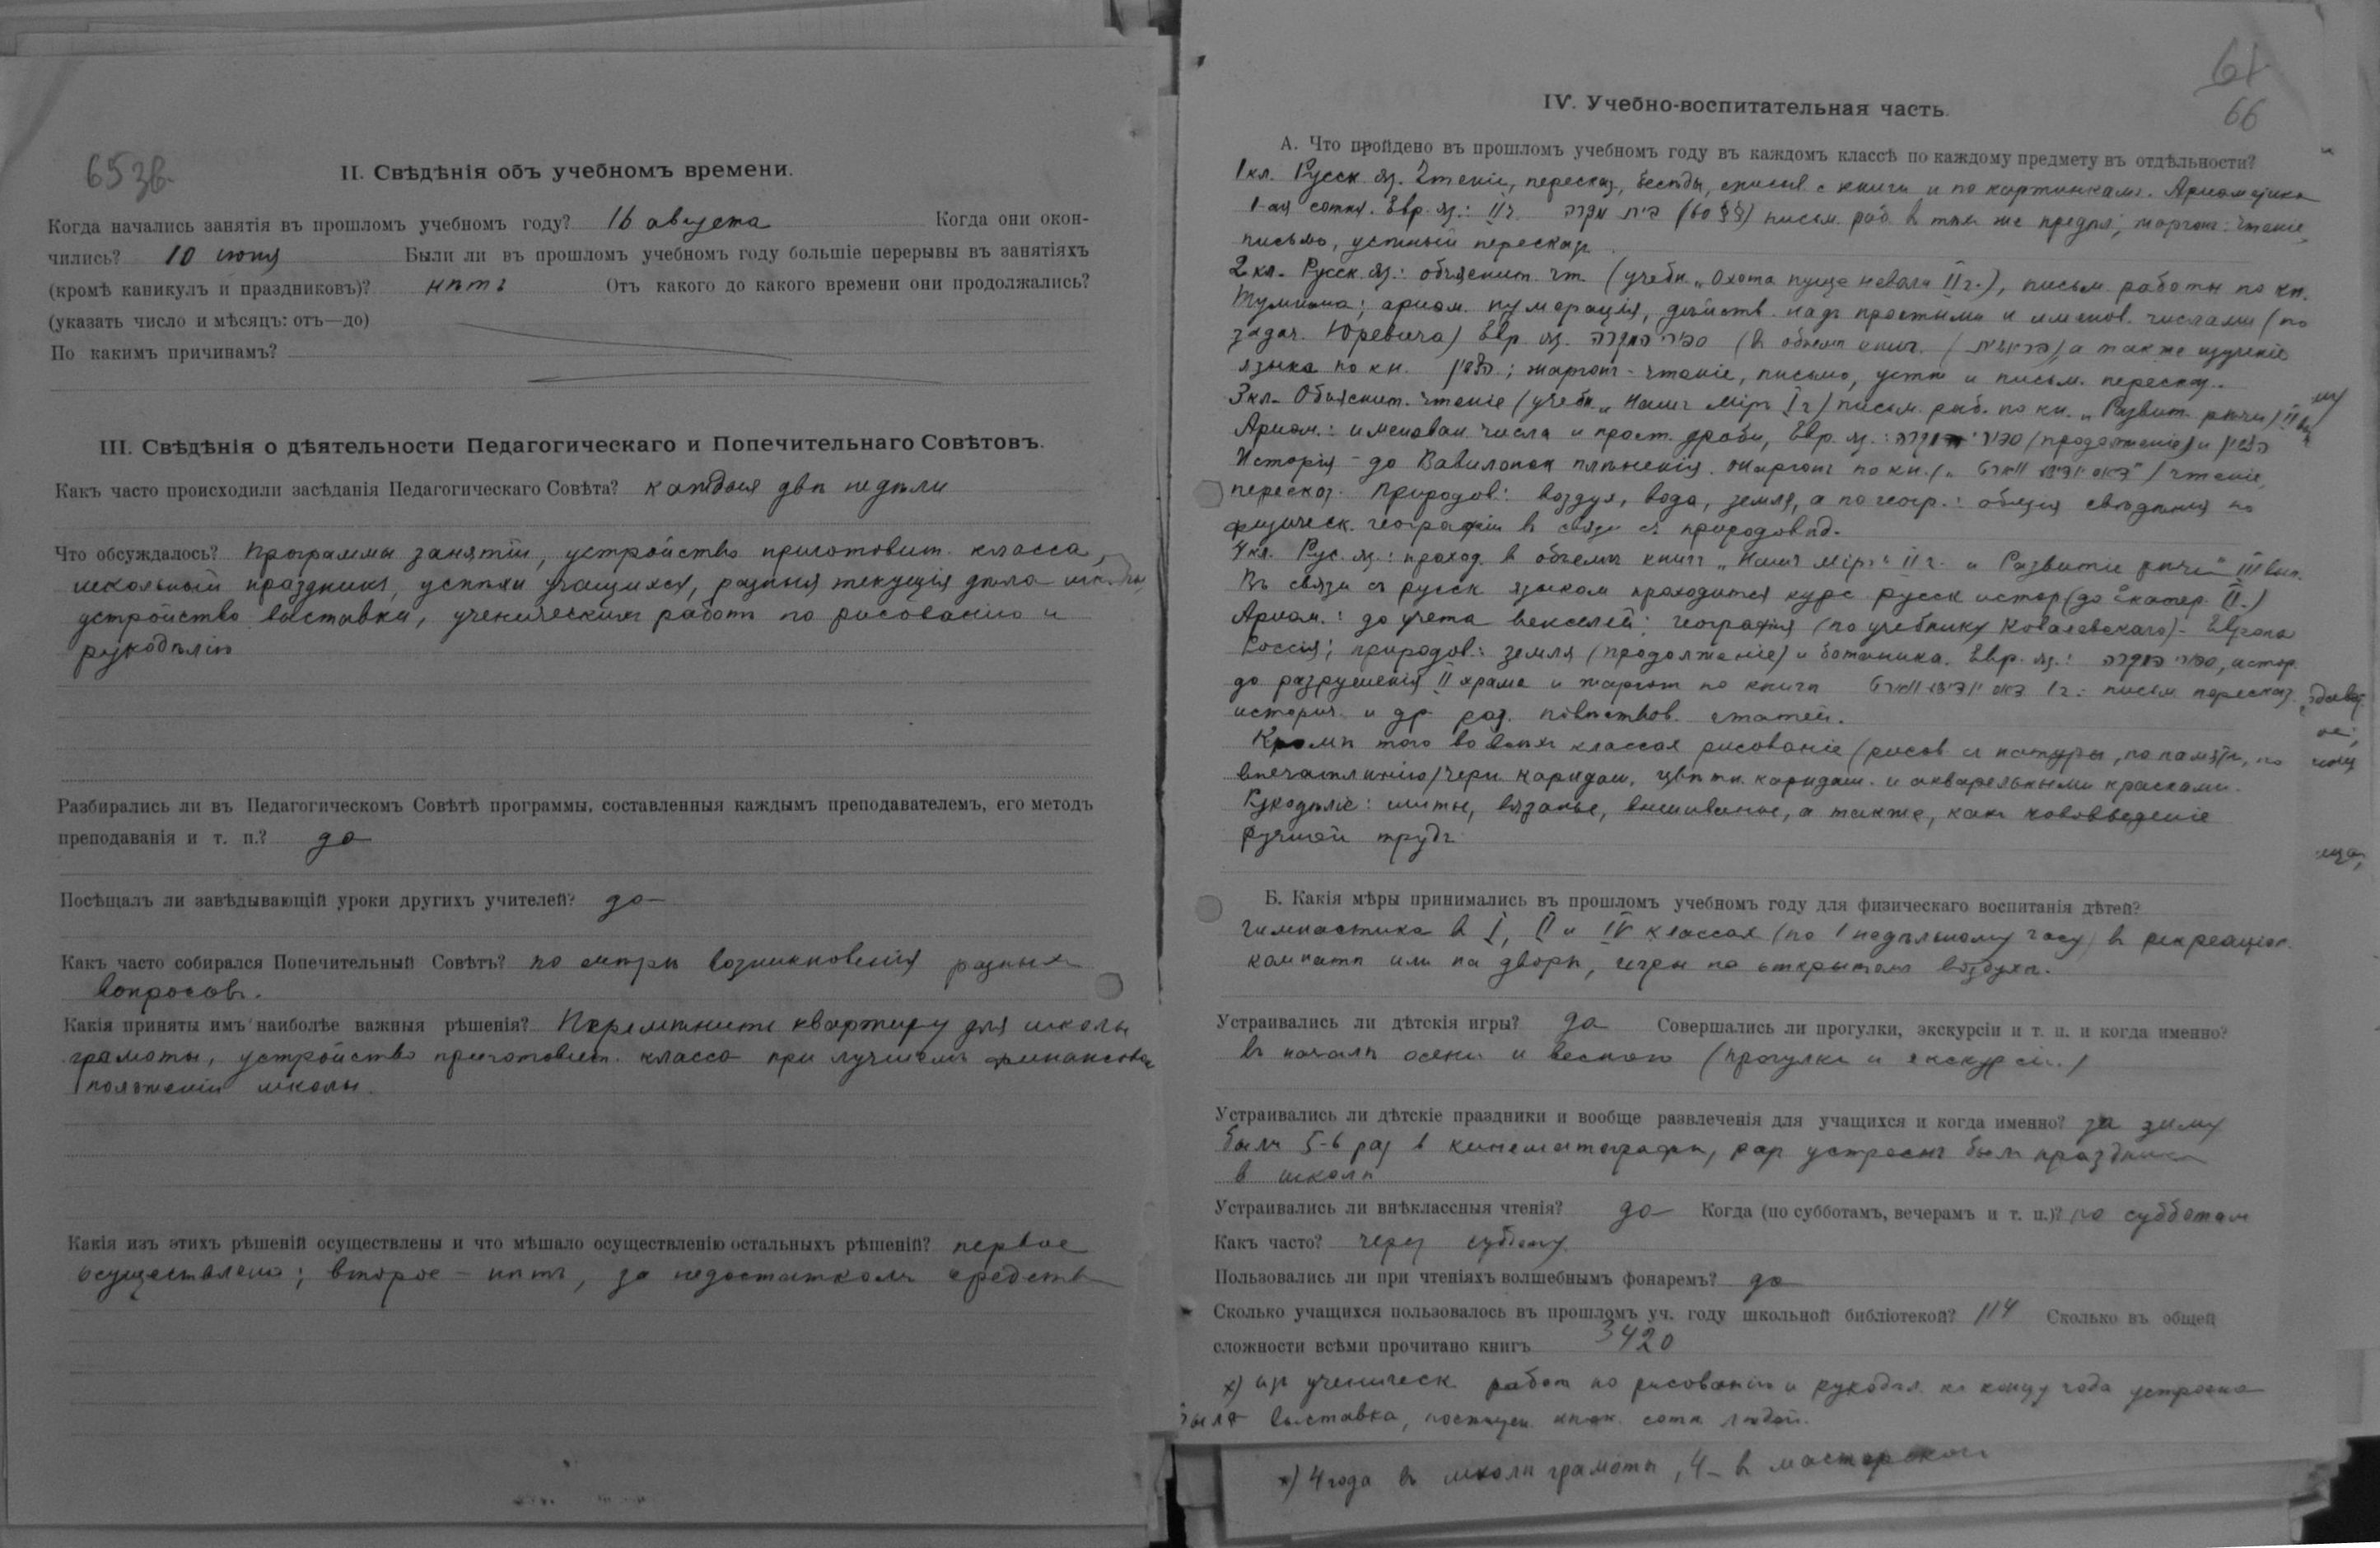 65 зв.
II. Свѣдѣнія объ учебномъ времени.
Когда начались занятія въ прошломъ учебномъ году? 16 августа Когда они окон-
чились? 10 Были ли въ прошломъ учебномъ году большіе перерывы въ занятіяхъ
(кромѣ каникулъ и праздниковъ)? нѣтъ Отъ какого до какого времени они продолжались?
(указать число и мѣсяцъ: отъ—до)
По какимъ причинамъ?
III. Свѣдѣнія о дѣятельности Педагогическаго и Попечительнаго Совѣтовъ.
Какъ часто происходили засѣданія Педагогическаго Совѣта? каждыя двѣ недѣли
Что обсуждалось? Программы занятій, устройство приготовит. класса,
школьный праздникъ, успѣхи учащихся, разныя текущія дѣла школы,
устройство выставки, ученическихъ работъ по рисованію и
рукодѣлію
Разбирались ли въ Педагогическомъ Совѣтѣ программы, составленныя каждымъ преподавателемъ, его методъ
преподаванія и т. п.? да
Посѣщалъ ли завѣдывающій уроки другихъ учителей? да
Какъ часто собирался Попечительный Совѣтъ? по мѣрѣ возникновенія разныхъ
вопросовъ.
Какія приняты имъ наиболѣе важныя рѣшенія? Перемѣнить квартиру для школы
грамоты, устройство приготовит. класса при лучшемъ финансовом
положеніи школы.
Какія изъ этихъ рѣшеній осуществлены и что мѣшало осуществленію остальныхъ рѣшеній? первое
осуществлено; второе – нѣтъ, за недостаткомъ средствъ
61
66
IV. Учебно-воспитательная часть.
А. Что пройдено въ прошломъ учебномъ году въ каждомъ классѣ по каждому предмету въ отдѣльности?
1 кл. Русск. яз. Чтеніе, пересказ, бесѣды, списыв. с книги и по картинкамъ. Ариѳметика
1-ая сотня. Евр. яз.: (60 §§) письм. раб. в тѣх же предѣл; жаргонъ: чтеніе,
письмо, устный пересказъ.
2 кл. Русск. яз.: объяснит. чт. (учебн. „Охота пуще неволи II ч.), письм. работы по кн.
ариѳм. нумерація, дѣйств. надъ простыми и именов. числами (по
задач. Юревича) Евр. яз. ספורי המקרא (въ объемѣ книг. а также изученіе
языка по кн. жаргон - чтеніе, письмо, устн и письм. пересказ.
3 кл. Объяснит. чтеніе (учебн. „Нашъ міръ I ч) письм. раб. по кн. „Развит. рѣчи" II
Ариѳм.: именован. числа и прост. дроби, Евр. яз.: (продолженіе) и
Исторія – до Вавилонск плѣненія. жаргонъ по кн. чтеніе,
пересказ. Природов: воздух, вода, земля, а по геогр.: общія свѣдѣнія по
физическ. географіи в связи съ природовѣд.
4 кл. Рус. яз.: проход. в объемѣ книгъ „Нашъ міръ" II ч. и Развитіе рѣчи" III вып.
Въ связи съ русск языком проходится курс русск истор (до Екатер. II.)
Ариѳм.: до учета векселей; географія (по учебнику Ковалевскаго) - Европа
Россія; природов.: земля (продолженіе) и ботаника. Евр. яз.: ספורי המקרא, истор.
до разрушенія II храма и жаргон по книгѣ I ч: письм. пересказ
историч. и др. раз. повѣствов. статей.
Кромѣ того во всѣхъ классах рисованіе (рисов. съ натуры, по памяти, по
впечатлѣнію) черн. карндаш, цвѣтн. карндаш. и акварельными красками.
Рукодѣліе: шитье, вязанье, вышиванье, а также, какъ нововведеніе
ручной трудъ
Б. Какія мѣры принимались въ прошломъ учебномъ году для физическаго воспитанія дѣтей?
Гимнастика в I, II и IV классах (по 1 недѣльному часу) в рекреаціон.
комнатѣ или на дворѣ, игры на открытомъ воздухѣ.
Устраивались ли дѣтскія игры? да Совершались ли прогулки, экскурсіи и т. п. и когда именно?
въ началѣ осени и весною (прогулки и экскурсіи.)
Устраивались ли дѣтскіе праздники и вообще развлеченія для учащихся и когда именно? за зиму
были 5-6 раз в кинематографѣ, раз устроенъ былъ праздникъ
в школѣ
Устраивались ли внѣклассныя чтенія? да Когда (по субботамъ, вечерамъ и т. п.)? по субботам
Какъ часто? через субботу
Пользовались ли при чтеніяхъ волшебнымъ фонаремъ? да
Сколько учащихся пользовалось въ прошломъ уч. году школьной библіотекой? 114 Сколько въ общей
сложности всѣми прочитано книгъ 3420
х) из ученическ работ по рисованію и рукодѣл. къ концу года устроена
была выставка, посѣщен. нѣск. сотн. людей.
х) 4 года въ школѣ грамоты, 4 – в мастерской